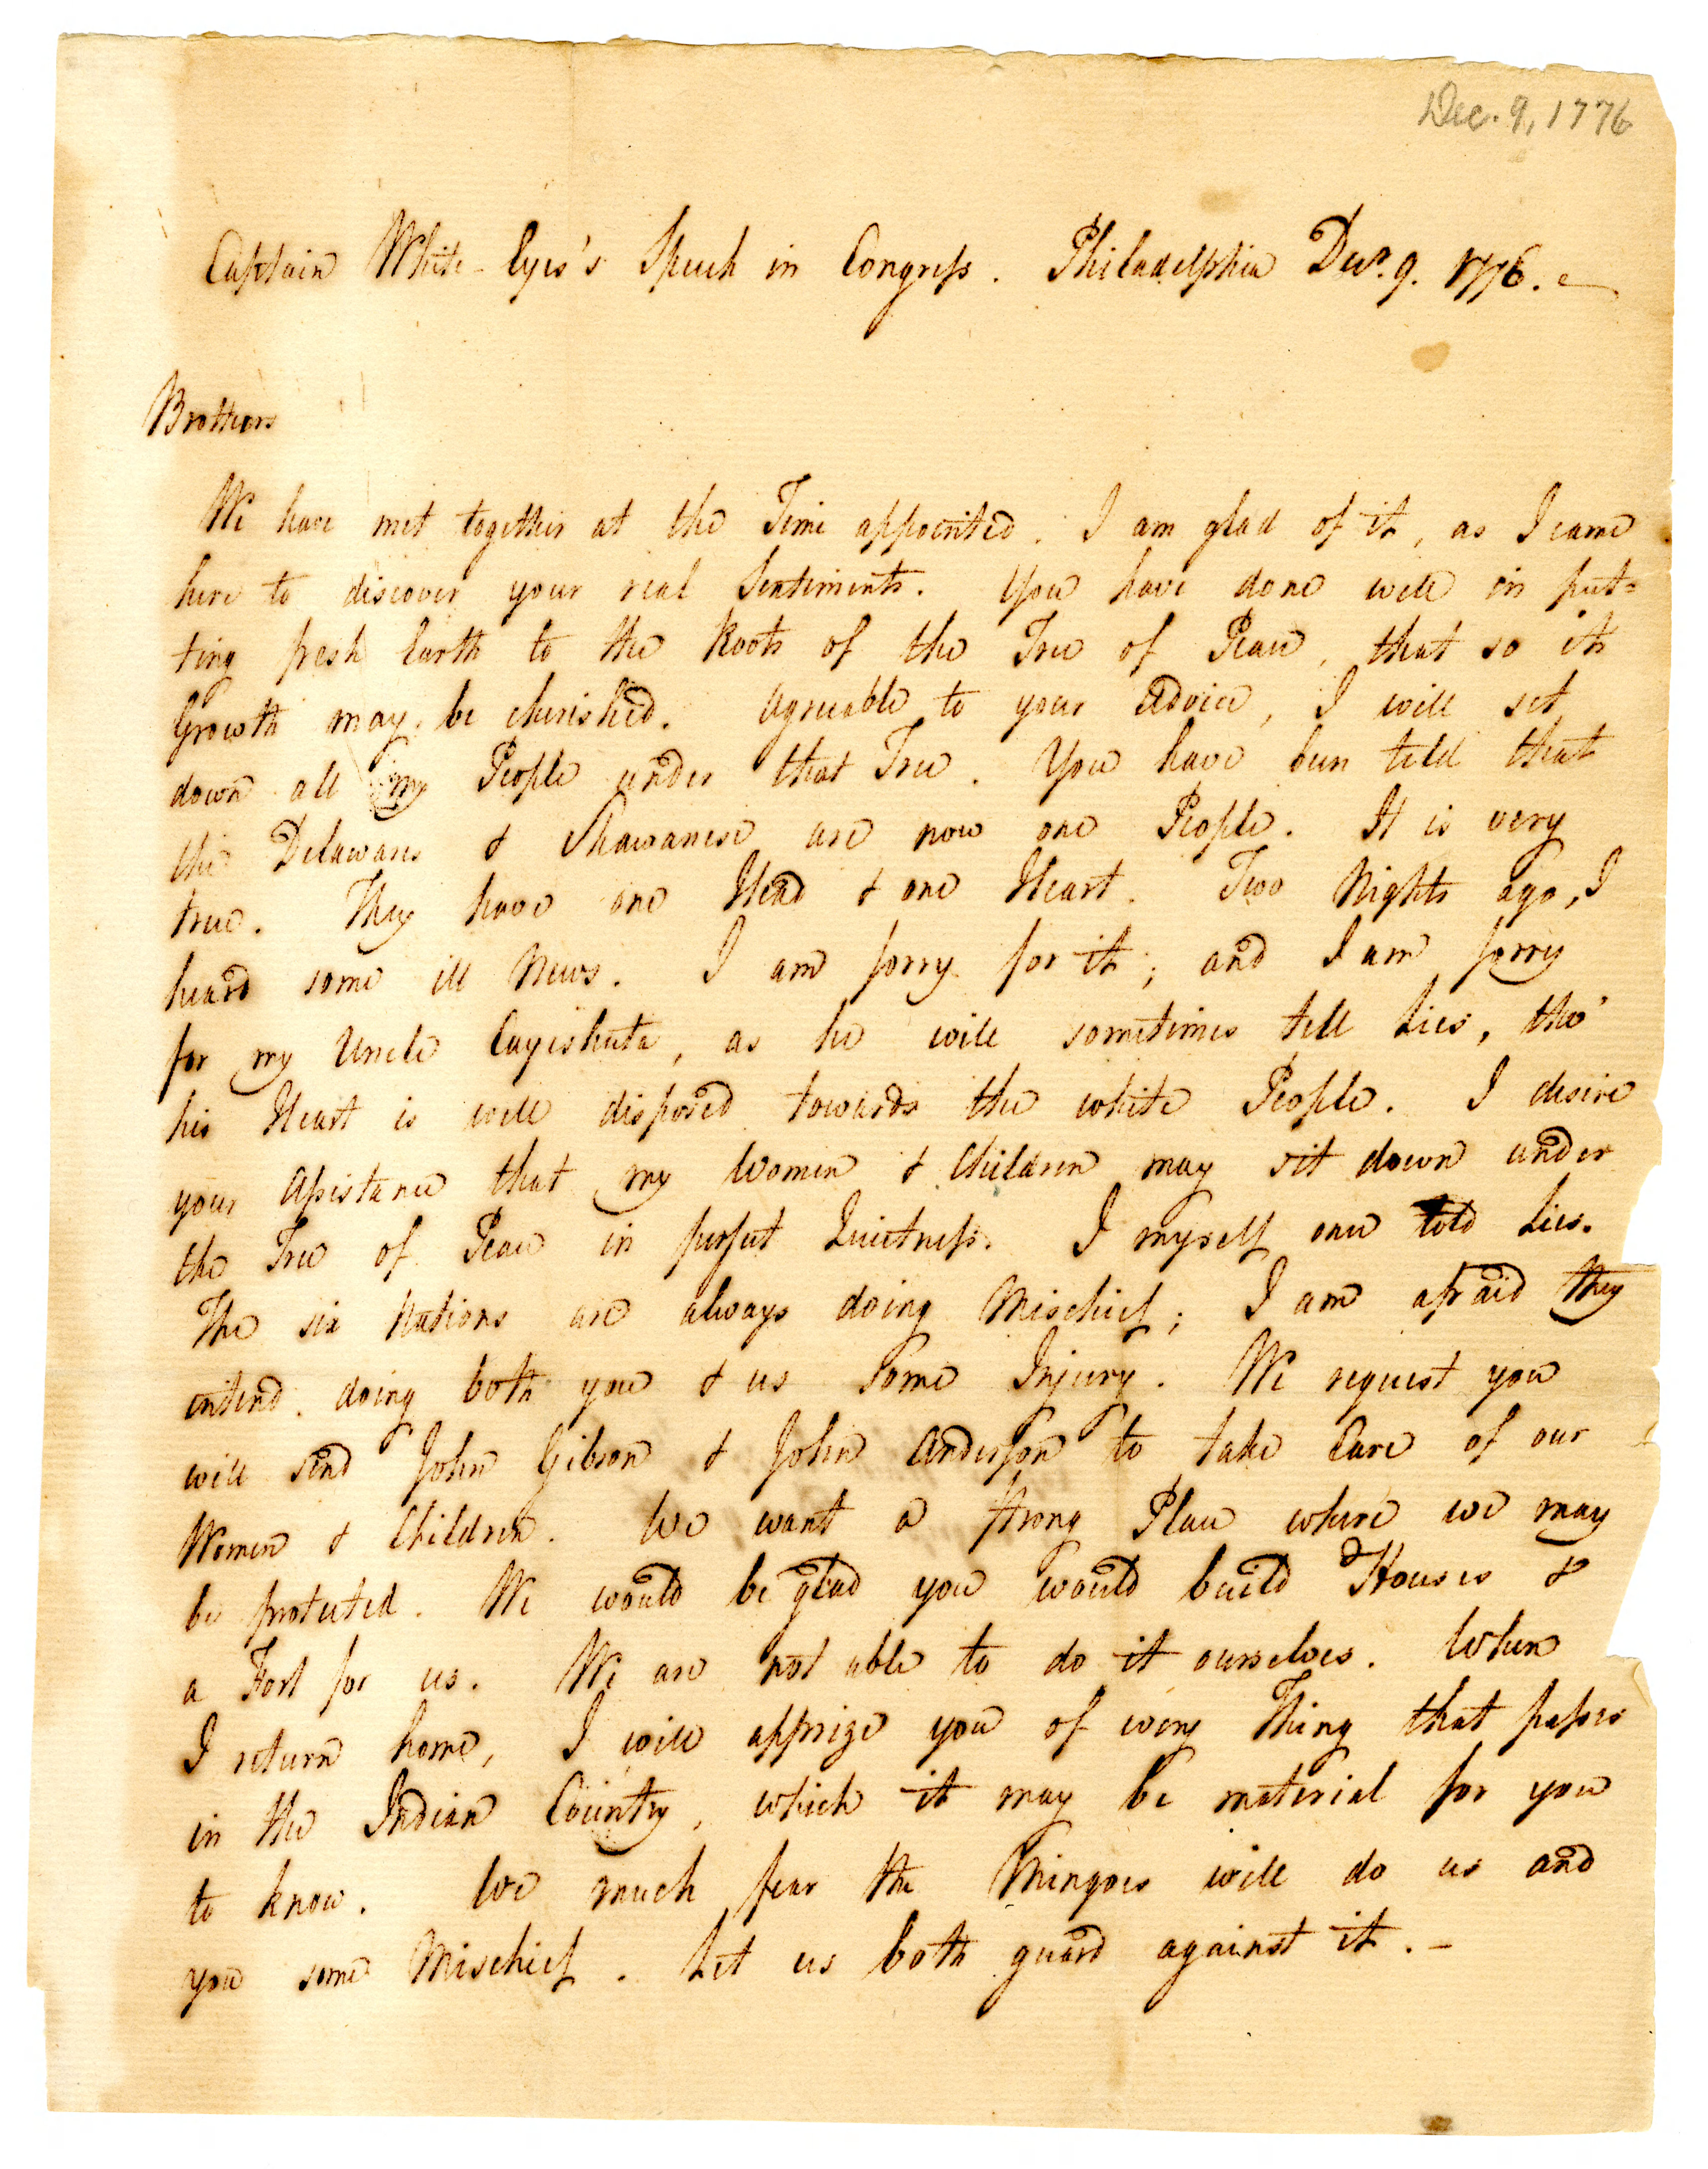 Dec. 9, 1776
Captain White-Eyes's Speech in Congress. Philadelphia Decr. 9. 1776.
Brothers
We have met together at the Time appointed. I am glad of it, as I came
here to discover your real Sentiments. You have done well in put=
ting fresh Earth to the Roots of the Tree of Peace, that so its
Growth may be cherished. Agreeable to your Advice, I will set
down all my People under that Tree. You have been told that
the Delawares & Shawanese are now one People. It is very
true. They have one Head & one Heart. Two Nights ago, I
heard some ill News. I am sorry for it; and I am sorry
for my Uncle Cayeshuta, as he will sometimes tell Lies, tho'
his Heart is well disposed towards the white People. I desire
your Assistance that my Women & Children may sit down under
the Tree of Peace in perfect Quietness. I myself once told Lies.
The six Nations are always doing Mischief; I am afraid they
intend doing both you & us some Injury. We request you
will send John Gibson & John Anderson to take Care of our
Women & Children. We want a strong Place where we may
be protected. We would be glad you would build Houses &
a Fort for us. We are not able to do it ourselves. When
I return home, I will apprize you of every Thing that passes
in the Indian Country, which it may be material for you
to know. We much fear the Mingoes will do us and
you some Mischief. Let us both guard against it.-